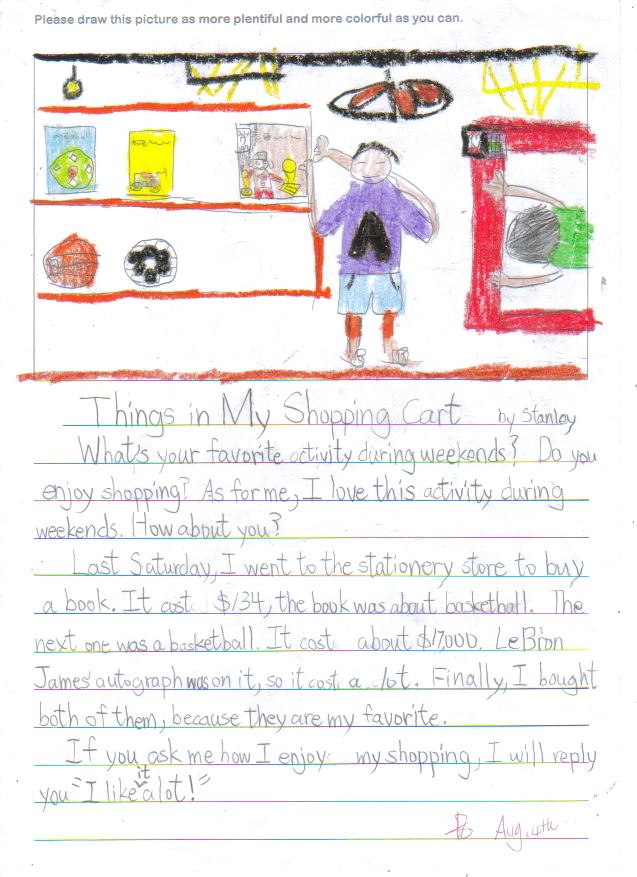 Please draw this picture as more plentiful and more colorful as you can.
A
Things in My Shopping Cart by Stanley
What's your favorite activity during weekends? Do you
enjoy shopping? As for me, I love this activity during
weekends. How about you?
Last Saturday, I went to the stationery store to buy
a book. It cost $134, the book was about basketball. The
next one was a basketball. It cost about $17,000. LeBron
James' autograph was on it, so it cost a lot. Finally, I bought
both of them, because they are my favorite.
If you ask me how I enjoy my shopping, I will reply
you "I like it a lot!"
Aug. 4th